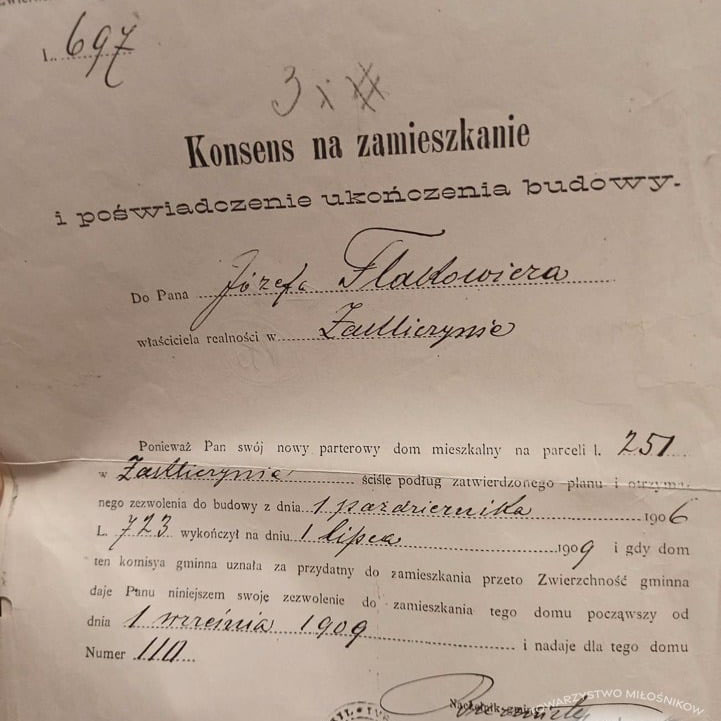 L. 697
3 i
Konsens na zamieszkanie
i poświadczenie ukończenia budowy.
Do Pana Józefa Flakowicza
właściciela realności w Zakliczynie
Ponieważ Pan swój nowy parterowy dom mieszkalny na parceli l. 251
w Zakliczynie ściśle podług zatwierdzonego planu i otrzyma-
nego zezwolenia do budowy z dnia 1 października 1906
L. 723 wykończył na dniu 1 lipca 1909 i gdy dom
ten komisya gminna uznała za przydatny do zamieszkania przeto Zwierzchność gminna
daje Panu niniejszem swoję zezwolenie do zamieszkania tego domu począwszy od
dnia 1 września 1909 i nadaje dla tego domu
Numer 110
Naczelnik gminy
TOWARZYSTWO MIŁOŚNIKÓW